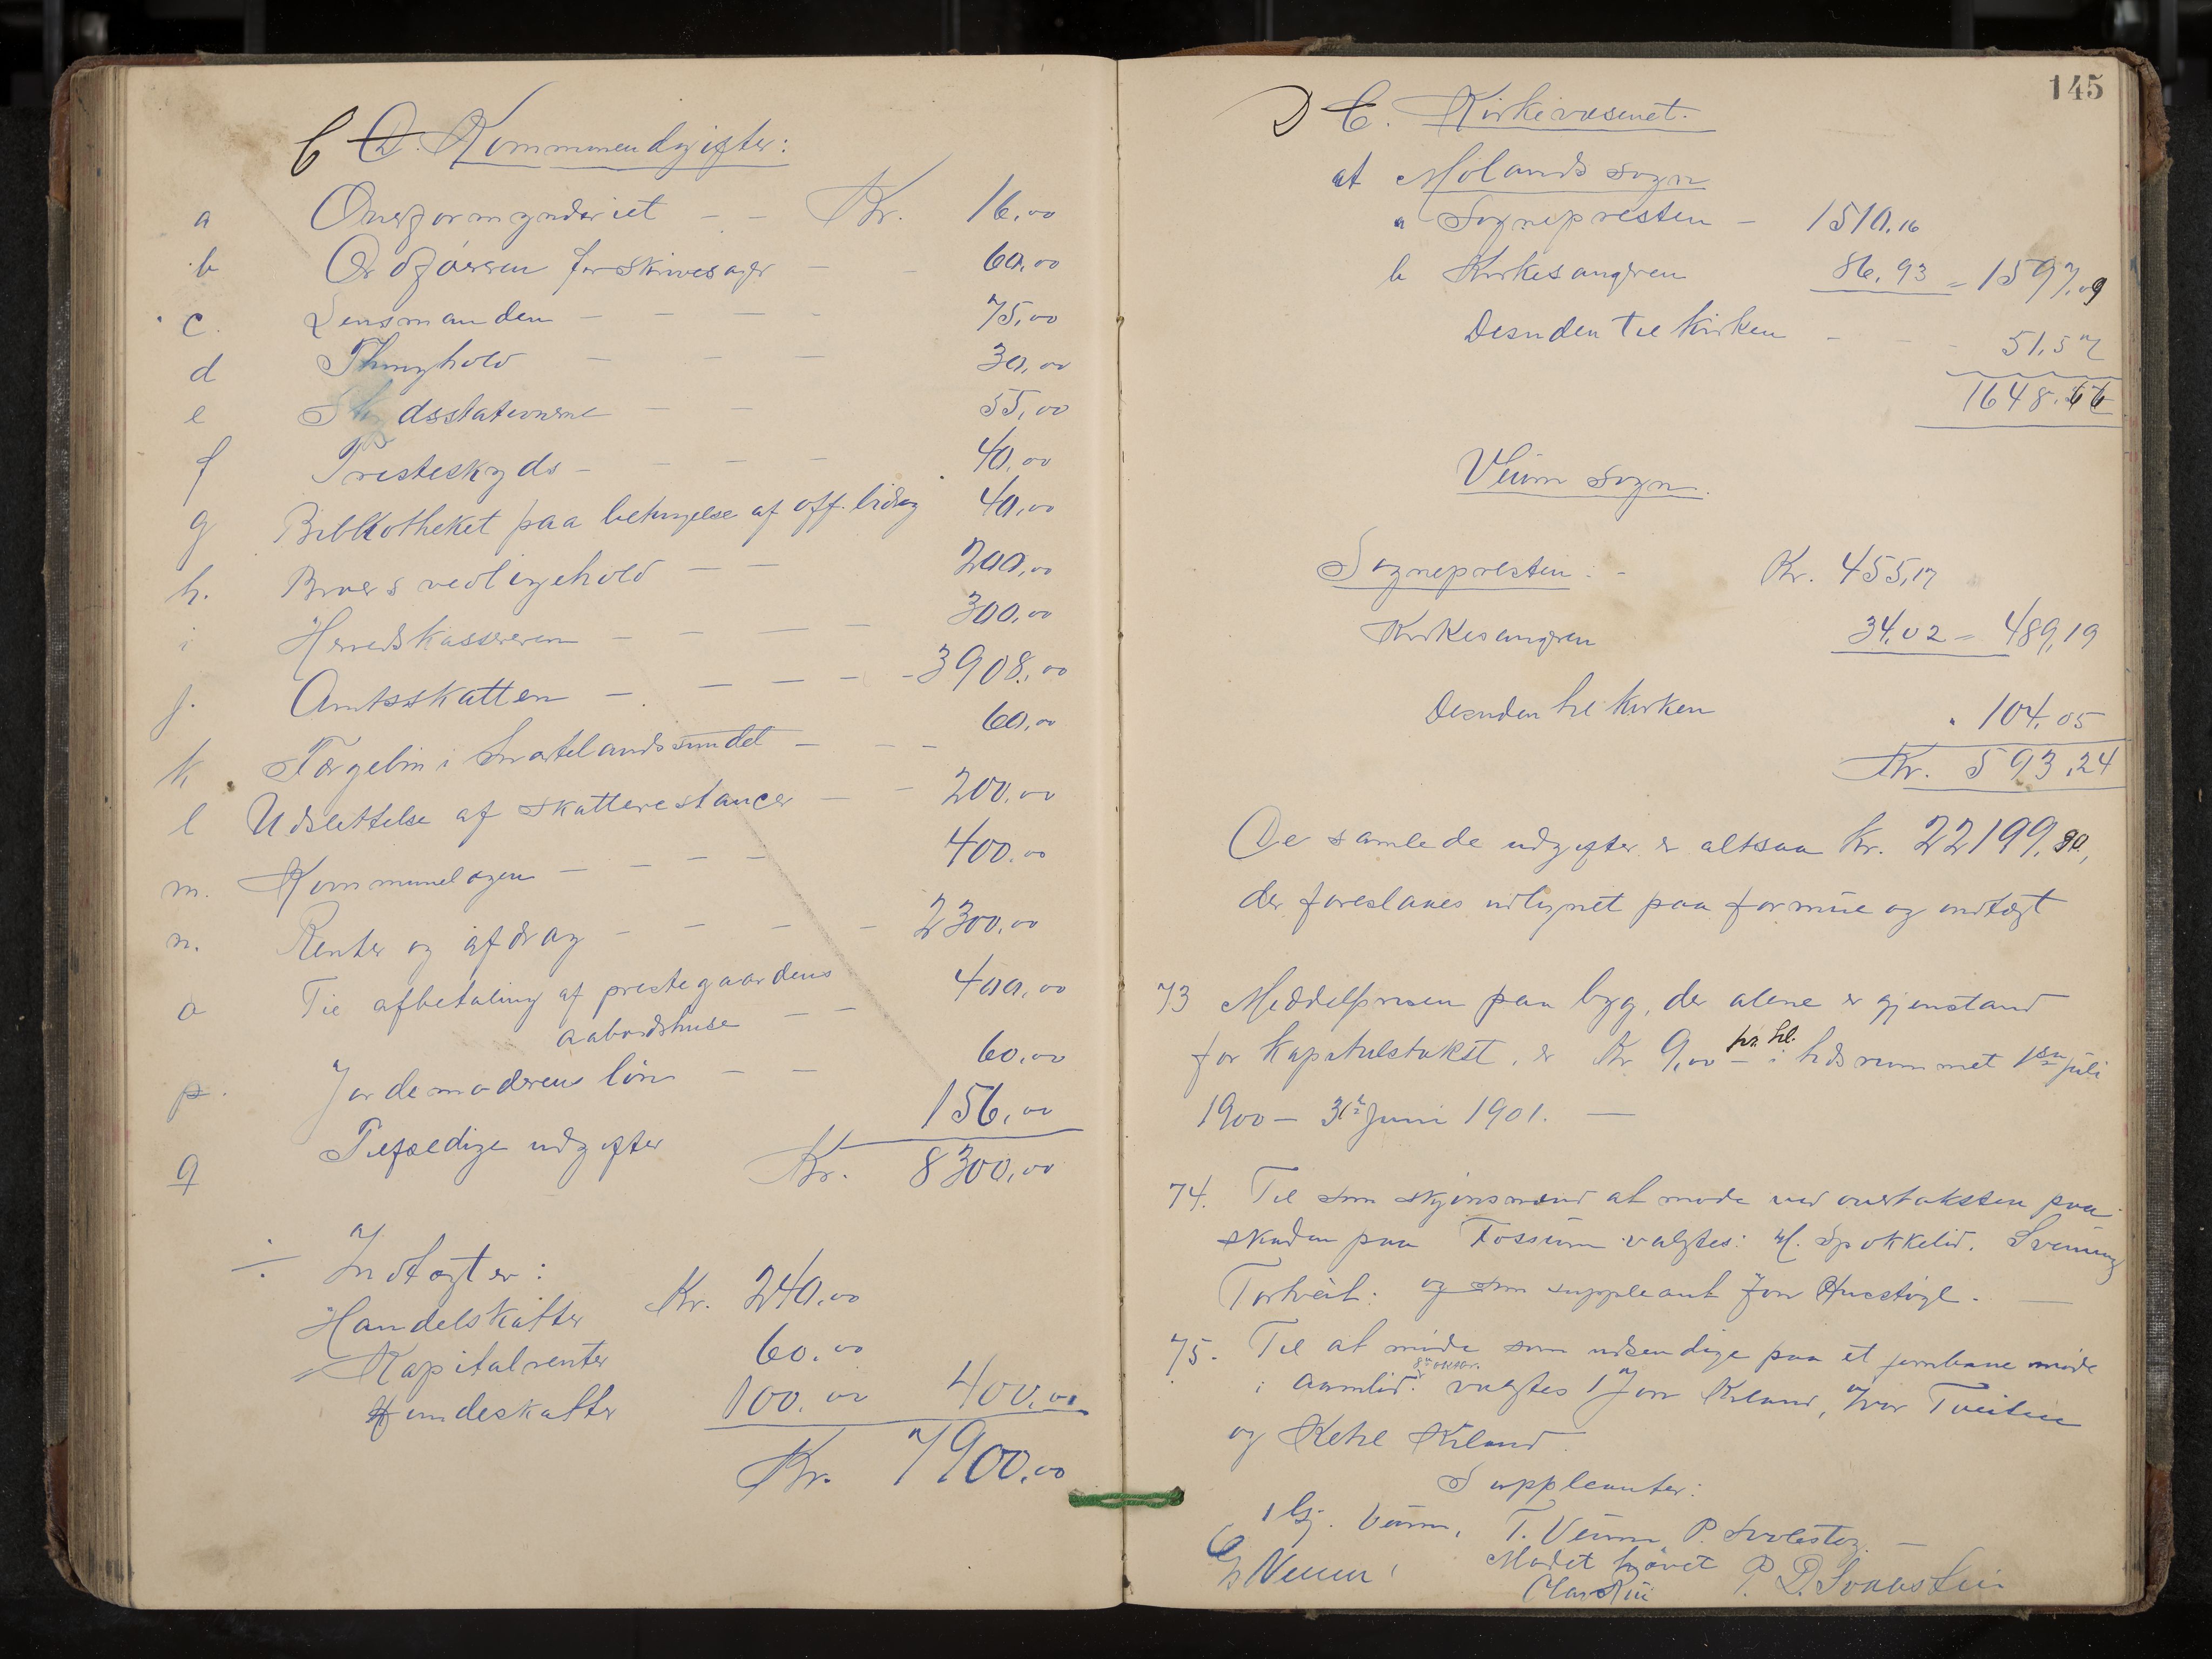 C D. Kommuneudgifter:
a Overformynderiet – – Kr. 16,00
b Ordføreren for skrivesager – – 60,00
c. Lensmanden – – – – 75,00
d Thinghold – – – 30,00
e dsstationerne – – 55,00
f Presteskyds – – – – 40,00
g Bibliotheket paa betingelse af off. bidrag 40,00
h. Broers vedligehold – – 200,00
i Herredskassereren – – – – 300,00
j. Amtsskatten – – – – – 3908,00
k Færgeløn i Svartelandssundet – – – 60,00
l Udslettelse af skatterestancer – – 200,00
m. Kommunelogen – – – – 400,00
n. Renter og afdrag – – – – 2300,00
o Til afbetaling af prestegaardens 400,00
aabodshuse – –
p. Jordemoderens løn – – 60,00
q Tilfældige udgifter 156,00
Kr. 8300,00
÷ Indtægter:
Handelskatter Kr. 240,00
Kapitalrenter 60,00
Hundeskatter 100,00 400,00
Kr. 7900,00
145
D E. Kirkevæsenet.
at Molands sogn
a Sognepresten – 1510,16
b Kirkesangeren 86,93 = 1597,09
Desuden til kirken – – – 51,57
1648,66
Veum sogn.
Sognepresten: – Kr. 455,17
Kirkesangeren 34,02 = 489,19
Desuden til kirken " 104,05
Kr. 593,24
De samlede udgifter er altsaa kr. 22199,90,
der foreslaaes udlignet paa formue og indtægt
73 Middelprisen paa byg, der alene er gjenstand
for kapitulstakst, er Kr 9,00 pr. hl. – i tidsrummet 1ste juli
1900 – 30te Juni 1901. —
74. Til som skjønsmænd at møde ved overtaksten paa
skaden paa Fossum valgtes: H. Spokkelid. Svenung
Tortveit. og som suppleant Jon Huestøyl. —
75. Til at møde som udsendige paa et jernbane møde
i Aamlid. 8de oktbr. valgtes 1 Jon Kiland, Ivar Tveiten
og Ketil Kiland.
Suppleanter:
1 Gj. Veum, T. Veum, P. Svalestog. —
Mødet hævet
G Veum P. D. Svalestui